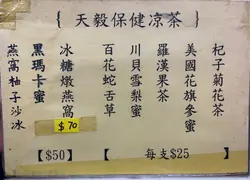 {天毅保健凉茶}
杞子菊花茶
美國花旗參蜜
羅漢果茶
川貝雪梨蜜
百花蛇舌草
冰糖燉燕窩
黑瑪卡蜜
燕窩柚子沙冰
每支$25】
$70
【$50】【